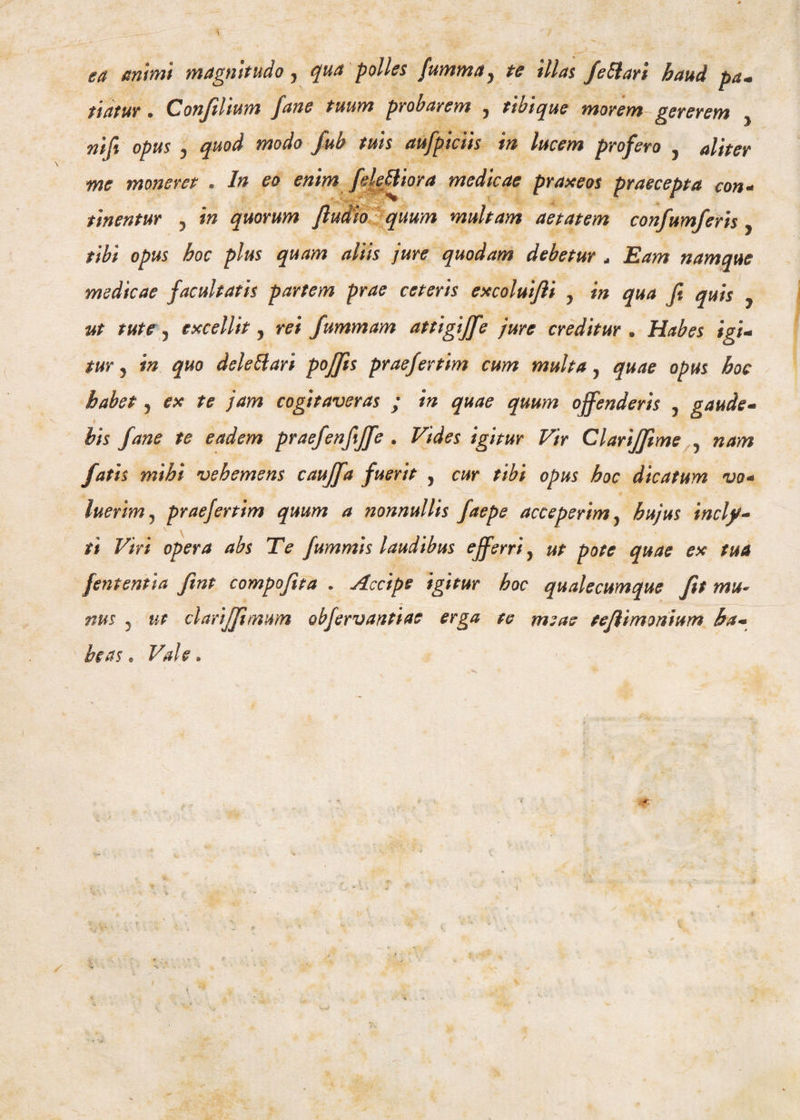 ea animi magnitudo, qua polles ſumma, te illas ſectari haud pa-
tiatur. Conſilium ſane tuum probarem, tibique morem gererem,
niſi opus, quod modo ſub tuis auſpiciis in lucem profero, aliter
me moneret. In eo enim ſelectiora medicae praxeos praecepta con-
tinentur, in quorum ſtudio quum multam aetatem conſumſeris,
tibi opus hoc plus quam aliis jure quodam debetur. Eam namque
medicae facultatis partem prae ceteris excoluiſti, in qua ſi quis,
ut tute, excellit, rei ſummam attigiſſe jure creditur. Habes igi-
tur, in quo delectari poſſis praeſertim cum multa, quae opus hoc
habet, ex te jam cogitaveras; in quae quum offenderis, gaude-
bis ſane te eadem praeſenſiſſe. Vides igitur Vir Clariſſime, nam
ſatis mihi vehemens cauſſa fuerit, cur tibi opus hoc dicatum vo-
luerim, praeſertim quum a nonnullis ſaepe acceperim, hujus incly-
ti Viri opera abs Te ſummis laudibus efferri, ut pote quae ex tua
ſententia ſint compoſita. Accipe igitur hoc qualecumque ſit mu-
nus, ut clariſſimum obſervantiae erga te meae teſtimonium ha-
beas. Vale.